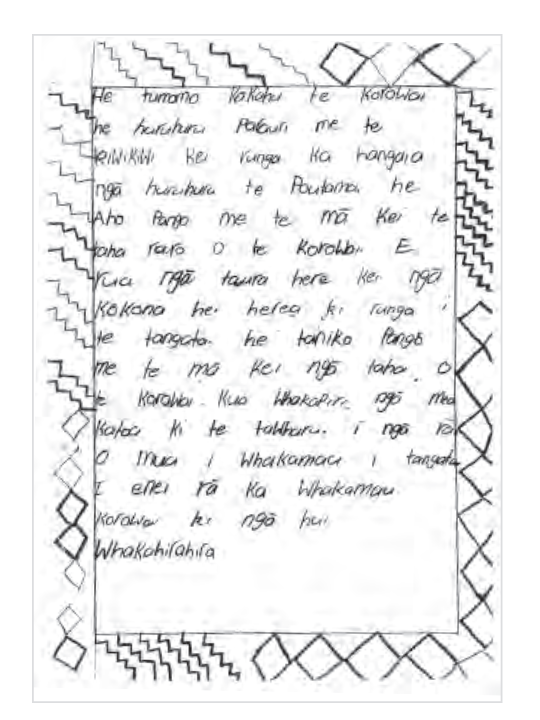 He tumomo Kakahu te Korowai
he huruhuru Pakauri me te
KiWiKiWi Kei runga Ka hangaia
ngā huruhuru te Poutama he
Aho Pango me te mā Kei te
taha raro O te Korowai. E
rua ngā taura here Kei ngā
KoKona hei herea ki runga i
te tangata. he tāniko Pango
me te mā Kei ngā taha O
te Korowai. Kua WhakaPiri ngā mea
Katoa Ki te tawharu. i ngā rā
O mua i Whakamau i tangata
I enei rā Ka Whakamau
Korowai ki ngā hui
Whakahirahira